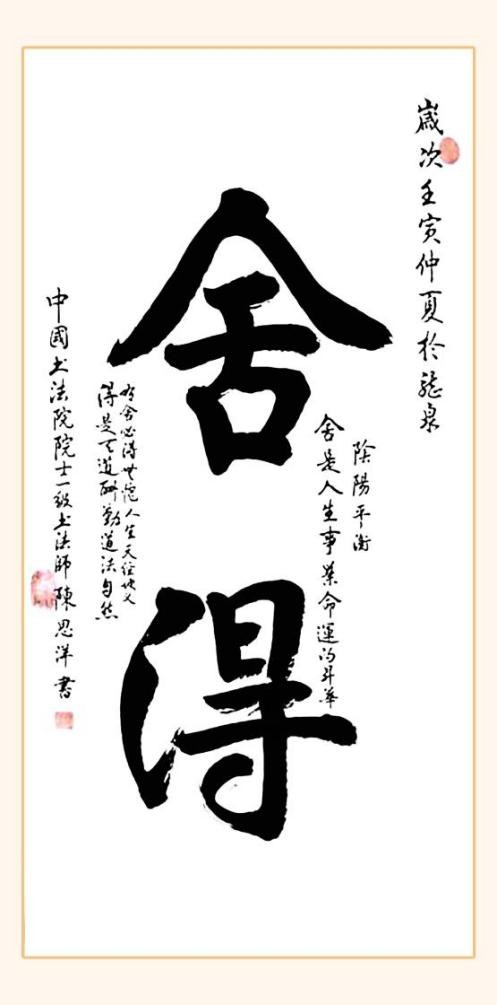 歲次壬寅仲夏於龍泉
舍得
陰陽平衡
舍是人生事業命運的昇華
有舍必得世間人生天經地义
得是天道酬勤道法自然
中國书法院院士一级书法師陳思洋書